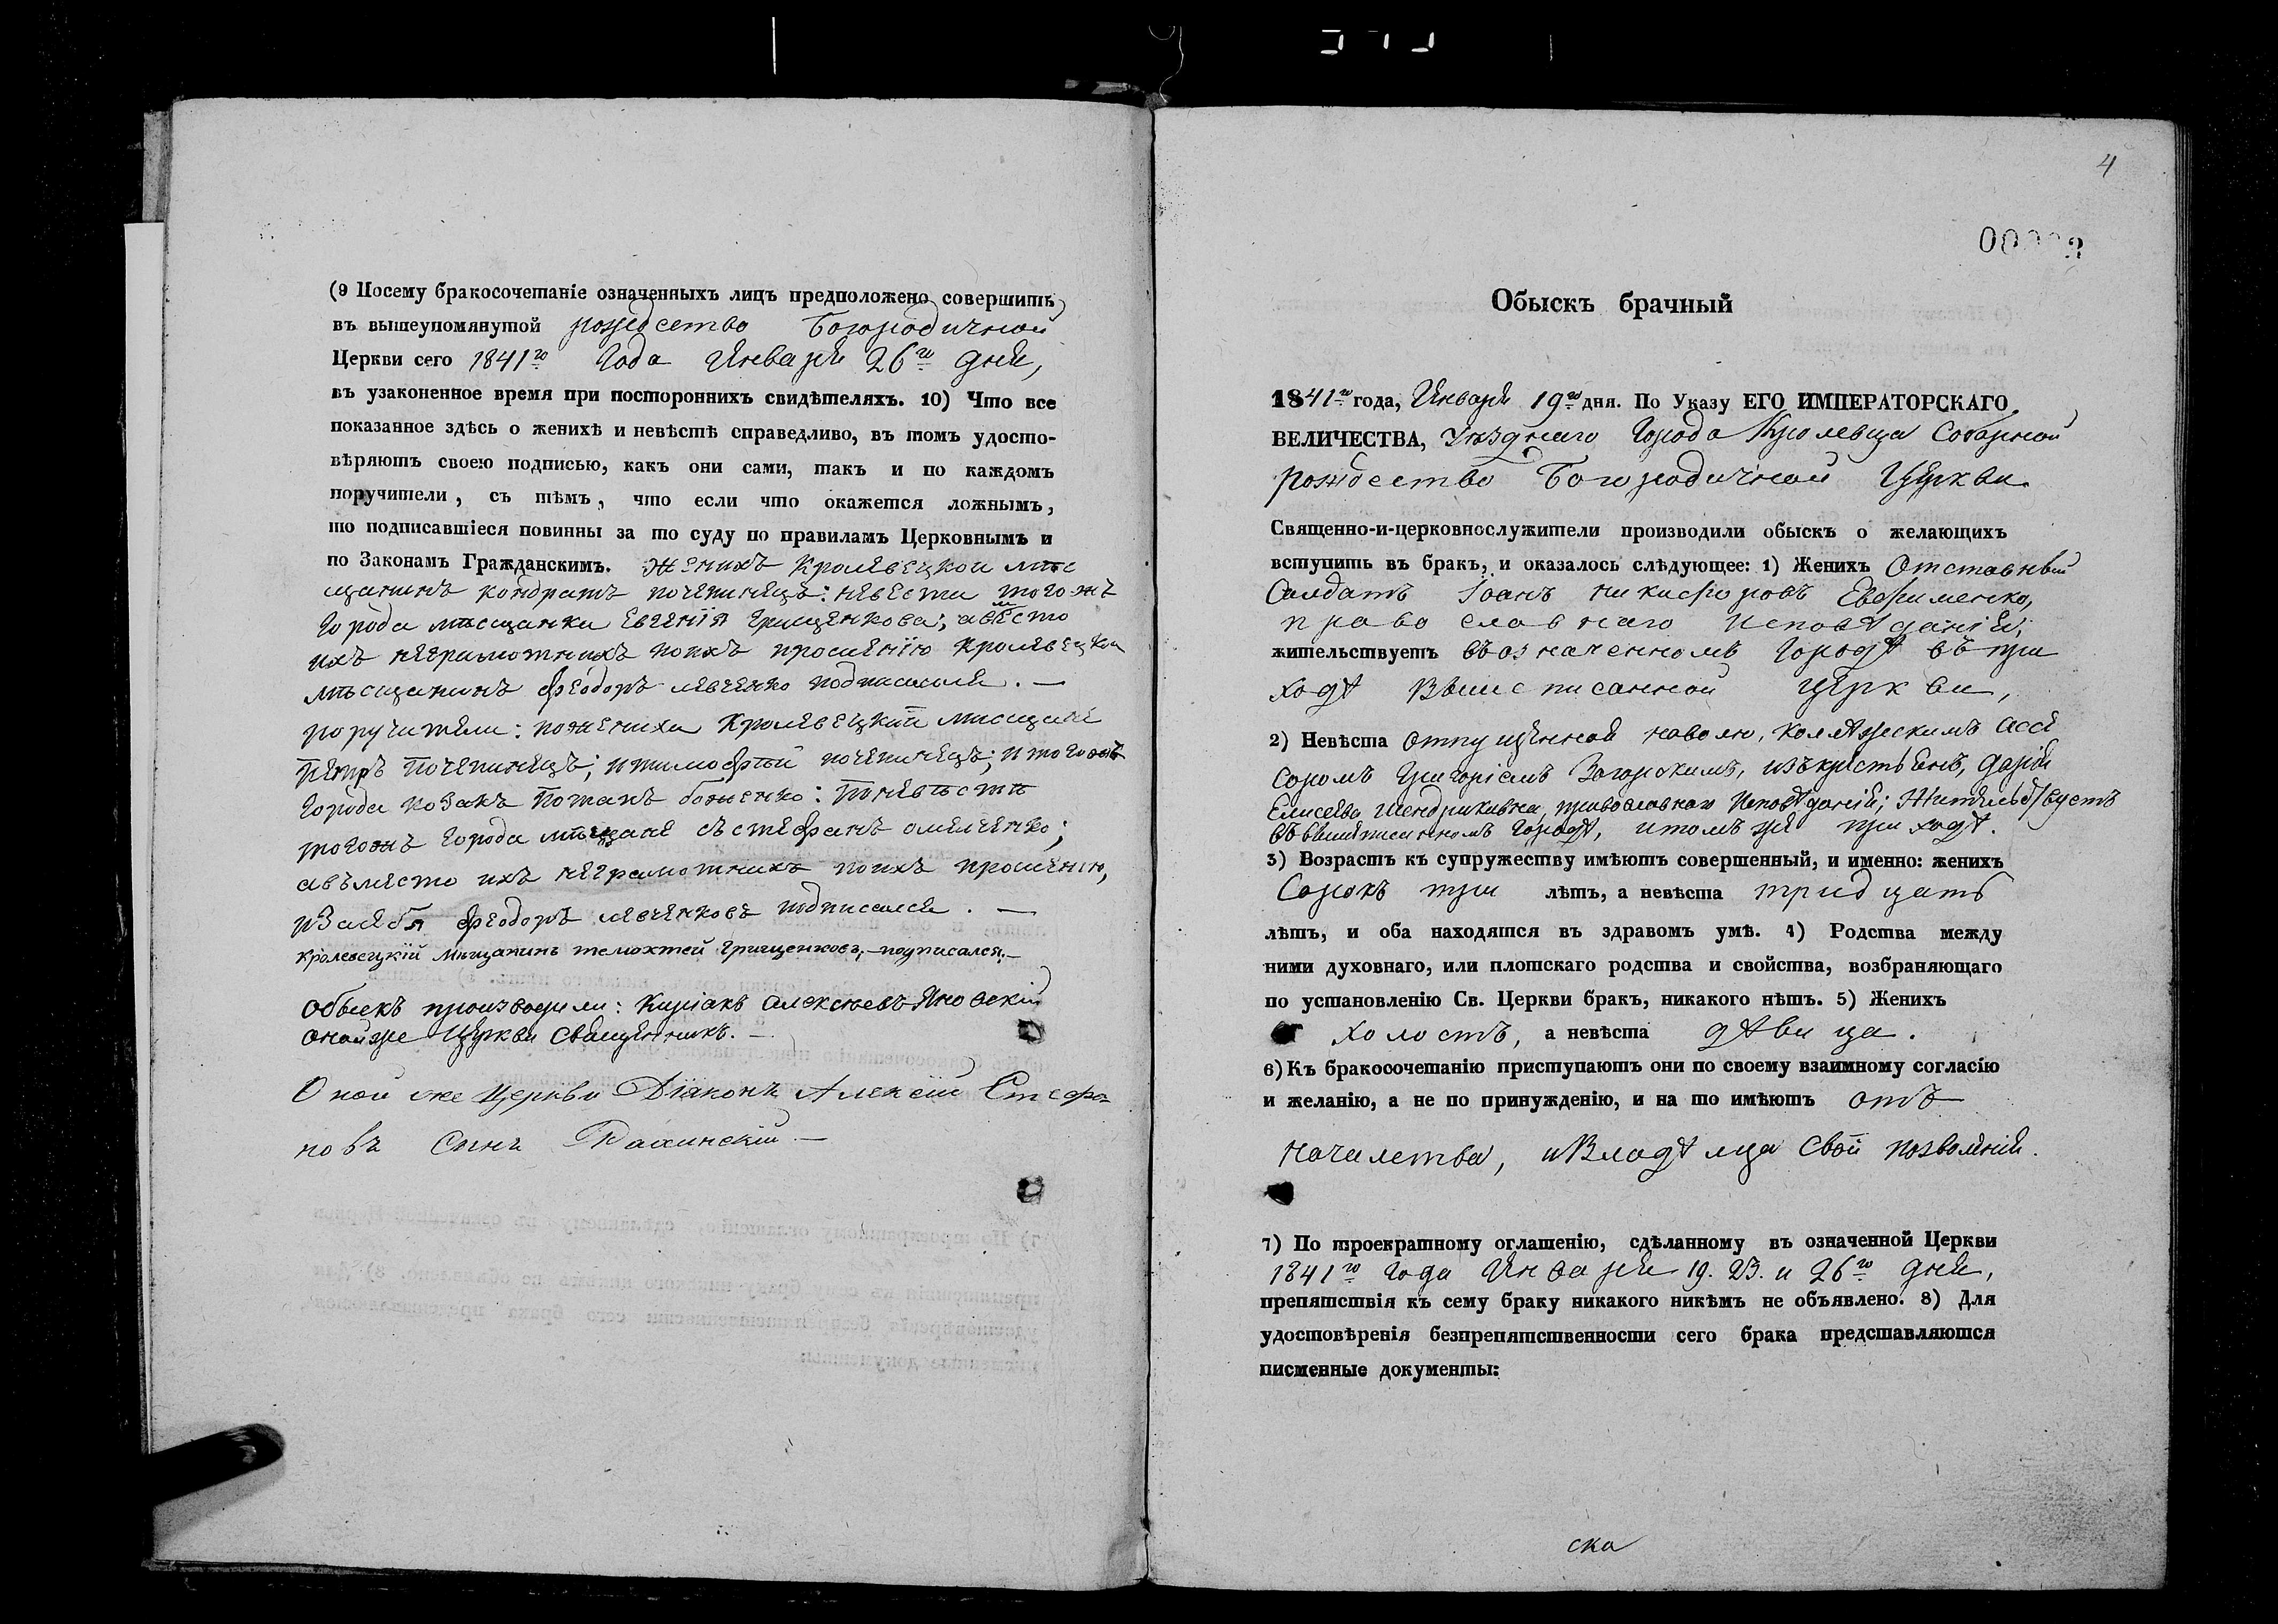 (9 Посему бракосочетаніе означенныхъ лицъ предположено совершить
въ вышеупомянутой рождество Богородичной
Церкви сего 1841го Года Января 26го дня,
въ узаконенное время при постороннихъ свидѣтеляхъ. 10) Что все
показанное здѣсь о женихѣ и невѣстѣ справедливо, въ томъ удосто-
вѣряютъ своею подписью, какъ они сами, такъ и по каждомъ
поручители, съ тѣмъ, что если что окажется ложнымъ,
то подписавшіеся повинны за то суду по правиламъ Церковнымъ и
по Законамъ Гражданскимъ. Женихъ Кролевецкой мѣс
щанинъ кондратъ почепинецъ: невеста того-жъ
Города мѣсщанка Евгенія Грищенкова; авместо
ихъ неграмотныхъ поихъ прошенію Кролевецкой
мѣсщанинъ феодоръ левченко подписался. —
поручители: пожениха Кролевецкии мисщане
Петръ Почепинецъ; итимофѣй почепинецъ; итогожъ
Города козакъ Потапъ боженко: Поневѣстѣ
тогожъ Города мѣщане състефанъ омелченко;
авъместо ихъ неграмотныхъ поихъ прошенію,
иЗасебя феодоръ левченковъ подписался. —
кролевецкій мѣщанинъ темохтей Грищенковъ, — подписался. —
Обыскъ производили: Киріакъ Алексѣевъ Яновскій
онойже Церкви Священникъ. —
Оной же Церкви Діаконъ Алексѣй Стефа=
новъ Сынъ —
4
Обыскъ брачный
1841го года, Января 19го дня. По Указу ЕГО ИМПЕРАТОРСКАГО
ВЕЛИЧЕСТВА, Уѣзднаго Города Кролевца Соборной
рождество Богородичной Церкви
Священно-и-церковнослужители производили обыскъ о желающихъ
вступить въ бракъ, и оказалось слѣдующее: 1) Женихъ Отставный
Салдатъ Іоанъ никифоровъ Евфименко,
православнаго исповѣданія;
жительствуетъ въозначенномъ Городѣ въ при
ходѣ Вышеписанной Церкви,
2) Невѣста отпущенная наволю, колляжескимъ Ассе
соромъ Григоріемъ Загорскимъ, изъкрестьянъ, дарія
Елисеева Шендрикивна, православнаго Исповѣданія; Жительствуетъ
въвышеписанномъ Городѣ, итомъ же приходѣ.
3) Возрастъ къ супружеству имѣютъ совершенный, и именно: женихъ
Сорокъ три лѣтъ, а невѣста тридцать
лѣтъ, и оба находятся въ здравомъ умѣ. 4) Родства между
ними духовнаго, или плотскаго родства и свойства, возбраняющаго
по установленію Св. Церкви бракъ, никакого нѣтъ. 5) Женихъ
холостъ, а невѣста дѣвица.
6) Къ бракосочетанію приступаютъ они по своему взаимному согласію
и желанію, а не по принужденію, и на то имѣютъ отъ
началства, иВладѣлца Свои позволѣнія.
7) По троекратному оглашенію, сдѣланному въ означенной Церкви
1841го Года Января 19. 23. и 26го дня,
препятствія къ сему браку никакого никѣмъ не объявлено. 8) Для
удостовѣренія безпрепятственности сего брака представляются
писменные документы:
ска